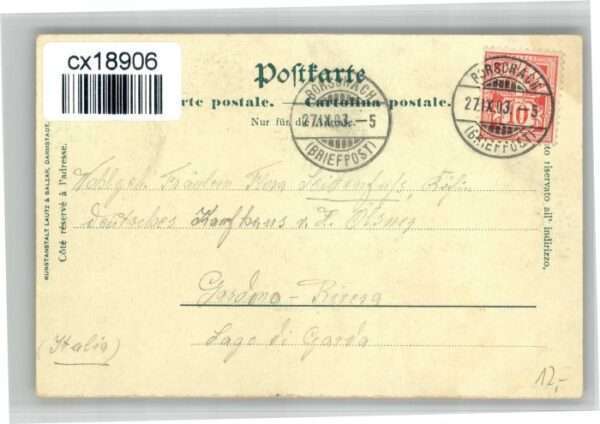 cx18906
Postkarte
Carte postale. — Cartolina postale.
Nur für die Adresse.
RORSCHACH
27.IX.03.-5
(BRIEFPOST)
RORSCHACH
27.IX.03.-5
(BRIEFPOST)
10
KUNSTANSTALT LAUTZ & BALZAR, DARMSTADT.
Côté réservé à l'adresse.
Lato riservato all' indirizzo.
Wohlgeb. Fräulein Flora
deutsches Kaufhaus v. F. Olsner
Gardone-Riviera
Lago di Garda
(Italia)
12,-